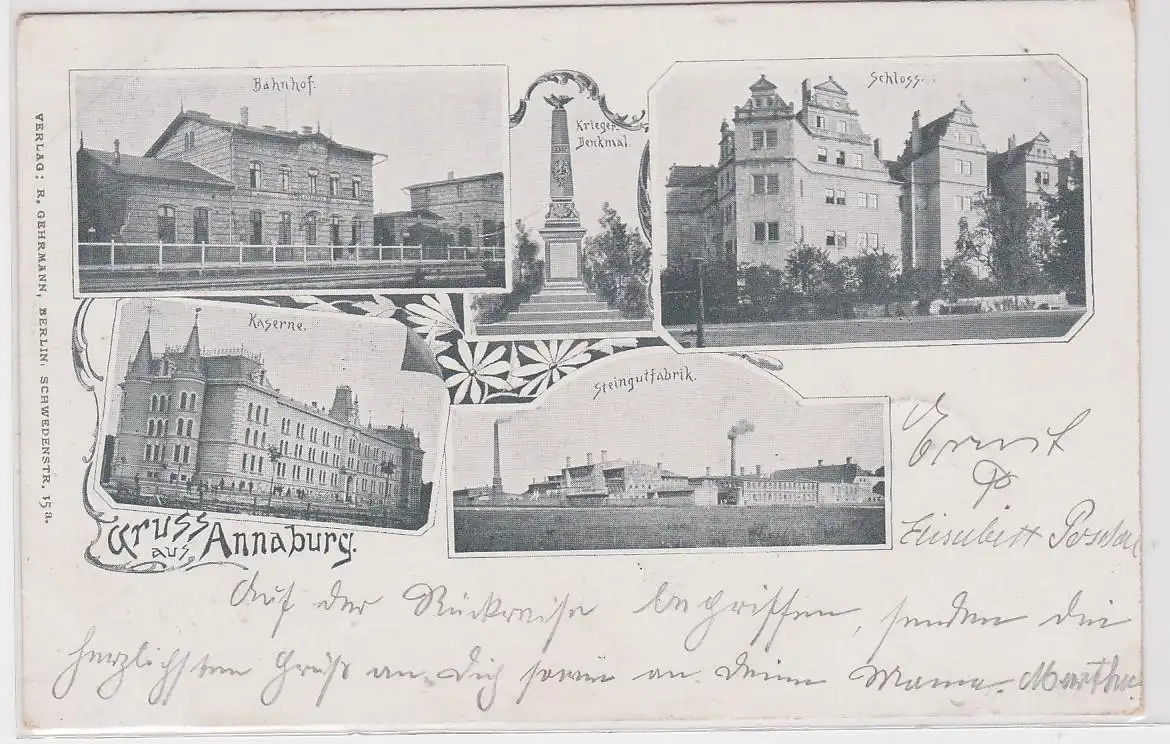 VERLAG: R. GEHRMANN, BERLIN, SCHWEDENSTR. 15a.
Bahnhof.
Krieger-
Denkmal.
Schloss.
Kaserne.
Steingutfabrik.
Gruss
aus
Annaburg.
Ernst
Elisabeth
Auf der Rückreise begriffen, senden die
herzlichsten Grüße an Dich sowie an Deine Mama. Martha